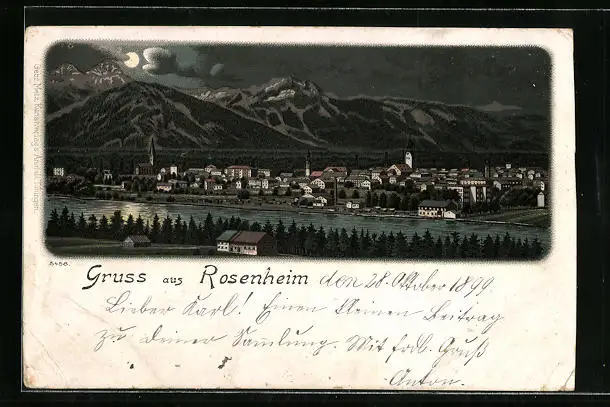 Gebr. Metz, Kunstverlags-Anstalt, Tübingen.
5456.
Gruss aus Rosenheim den 28. Oktober 1899.
Lieber Karl! Einen kleinen Beitrag
zu deiner Samlung. Mit frdl. Gruß
Anton.